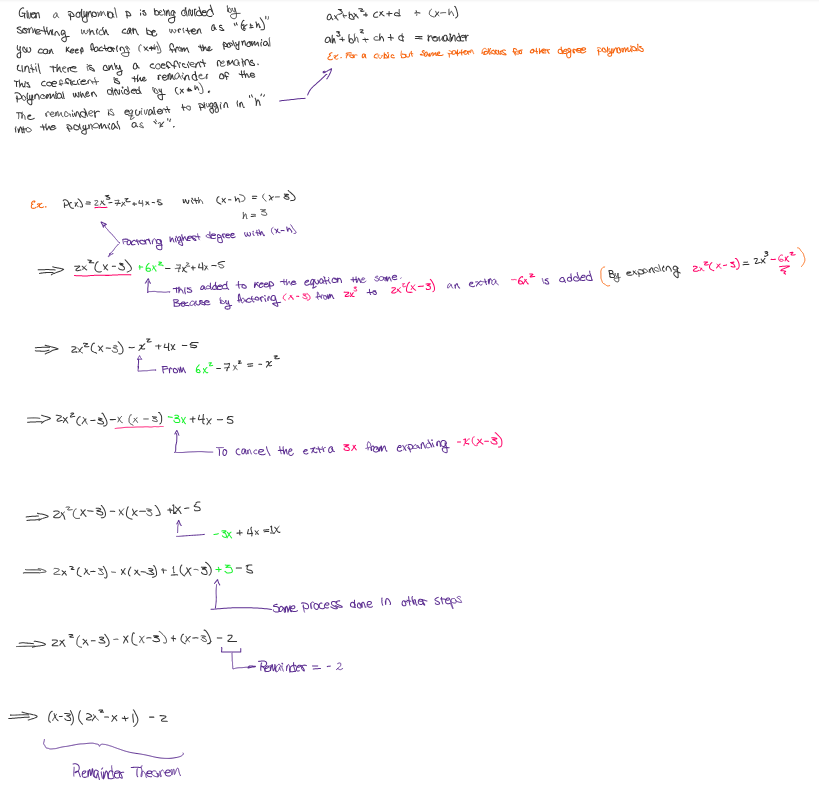 Given a polynomial p is being divided by
something which can be written as "(x±h)"
you can keep factoring (x±h) from the polynomial
until there is only a coefficient remains.
This coefficient is the remainder of the
polynomial when divided by (x±h).
The remainder is equivalent to pluggin in "h"
into the polynomial as "x".
ax³+bx²+cx+d ÷ (x-h)
ah³+bh²+ch+d = remainder
Ex. For a cubic but same pattern follows for other degree polynomials
Ex. P(x)=2x³-7x²+4x-5 with (x-h) = (x-3)
h=3
Factoring highest degree with (x-h)
⇒ 2x²(x-3) +6x²-7x²+4x-5
This added to keep the equation the same.
Because by factoring (x-3) from 2x³ to 2x²(x-3) an extra -6x² is added (By expanding 2x²(x-3)=2x³-6x²)
⇒ 2x²(x-3)-x²+4x-5
From 6x²-7x²=-x²
⇒ 2x²(x-3)-x(x-3)-3x+4x-5
To cancel the extra 3x from expanding -x(x-3)
⇒ 2x²(x-3)-x(x-3)+1x-5
-3x+4x=1x
⇒ 2x²(x-3)-x(x-3)+1(x-3)+3-5
Same process done in other steps
⇒ 2x²(x-3)-x(x-3)+(x-3)-2
Remainder = -2
⇒ (x-3)(2x²-x+1) -2
Remainder Theorem